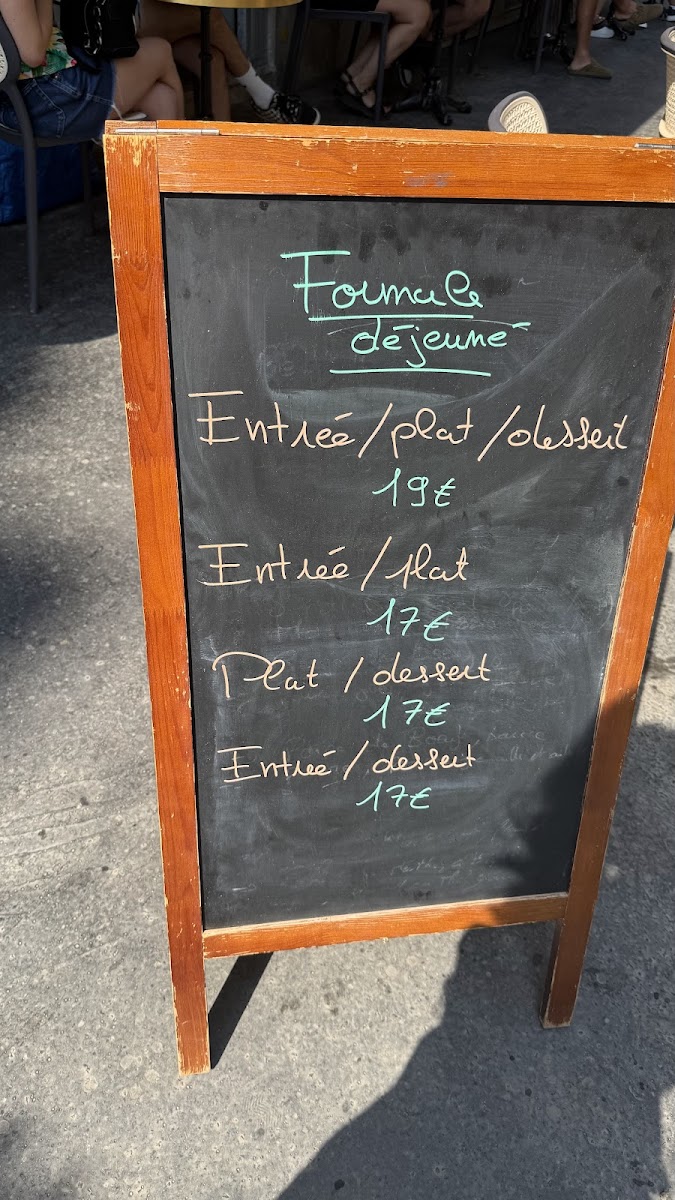 Formule
déjeuné
Entrée/plat/dessert
19€
Entrée/plat
17€
Plat/dessert
17€
Entrée/dessert
17€